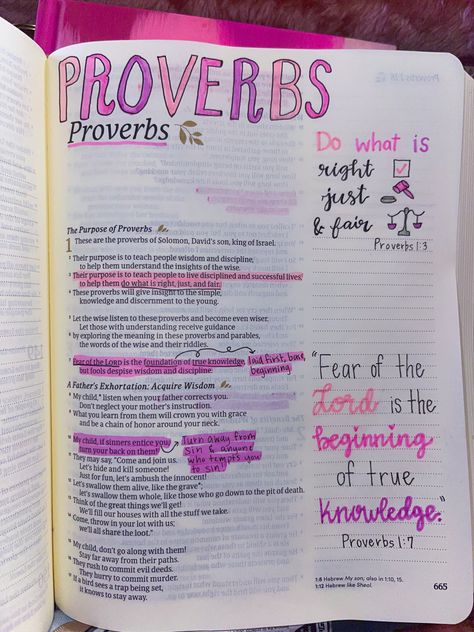 PROVERBS
Proverbs
Do what is
right
just
& fair
Proverbs 1:3
The Purpose of Proverbs
1 These are the proverbs of Solomon, David's son, king of Israel.
2 Their purpose is to teach people wisdom and discipline,
to help them understand the insights of the wise.
3 Their purpose is to teach people to live disciplined and successful lives,
to help them do what is right, just, and fair.
4 These proverbs will give insight to the simple,
knowledge and discernment to the young.
5 Let the wise listen to these proverbs and become even wiser.
Let those with understanding receive guidance
6 by exploring the meaning in these proverbs and parables,
the words of the wise and their riddles.
7 Fear of the LORD is the foundation of true knowledge,
but fools despise wisdom and discipline.
laid first, base,
beginning
A Father's Exhortation: Acquire Wisdom
8 My child, listen when your father corrects you.
Don't neglect your mother's instruction.
9 What you learn from them will crown you with grace
and be a chain of honor around your neck.
10 My child, if sinners entice you,
turn your back on them!
Turn away from
sin & anyone
who tempts you
to sin!
11 They may say, "Come and join us.
Let's hide and kill someone!
Just for fun, let's ambush the innocent!
12 Let's swallow them alive, like the grave;
let's swallow them whole, like those who go down to the pit of death.
13 Think of the great things we'll get!
We'll fill our houses with all the stuff we take.
14 Come, throw in your lot with us;
we'll all share the loot."
15 My child, don't go along with them!
Stay far away from their paths.
16 They rush to commit evil deeds.
They hurry to commit murder.
17 If a bird sees a trap being set,
it knows to stay away.
"Fear of the
Lord is the
beginning
of true
knowledge."
Proverbs 1:7
1:8 Hebrew My son; also in 1:10, 15.
1:12 Hebrew like Sheol.
665